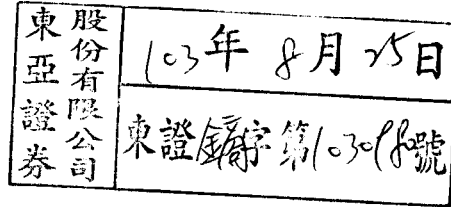 東亞證券
股份有限公司
103年8月25日
東證鏑字第1030980號